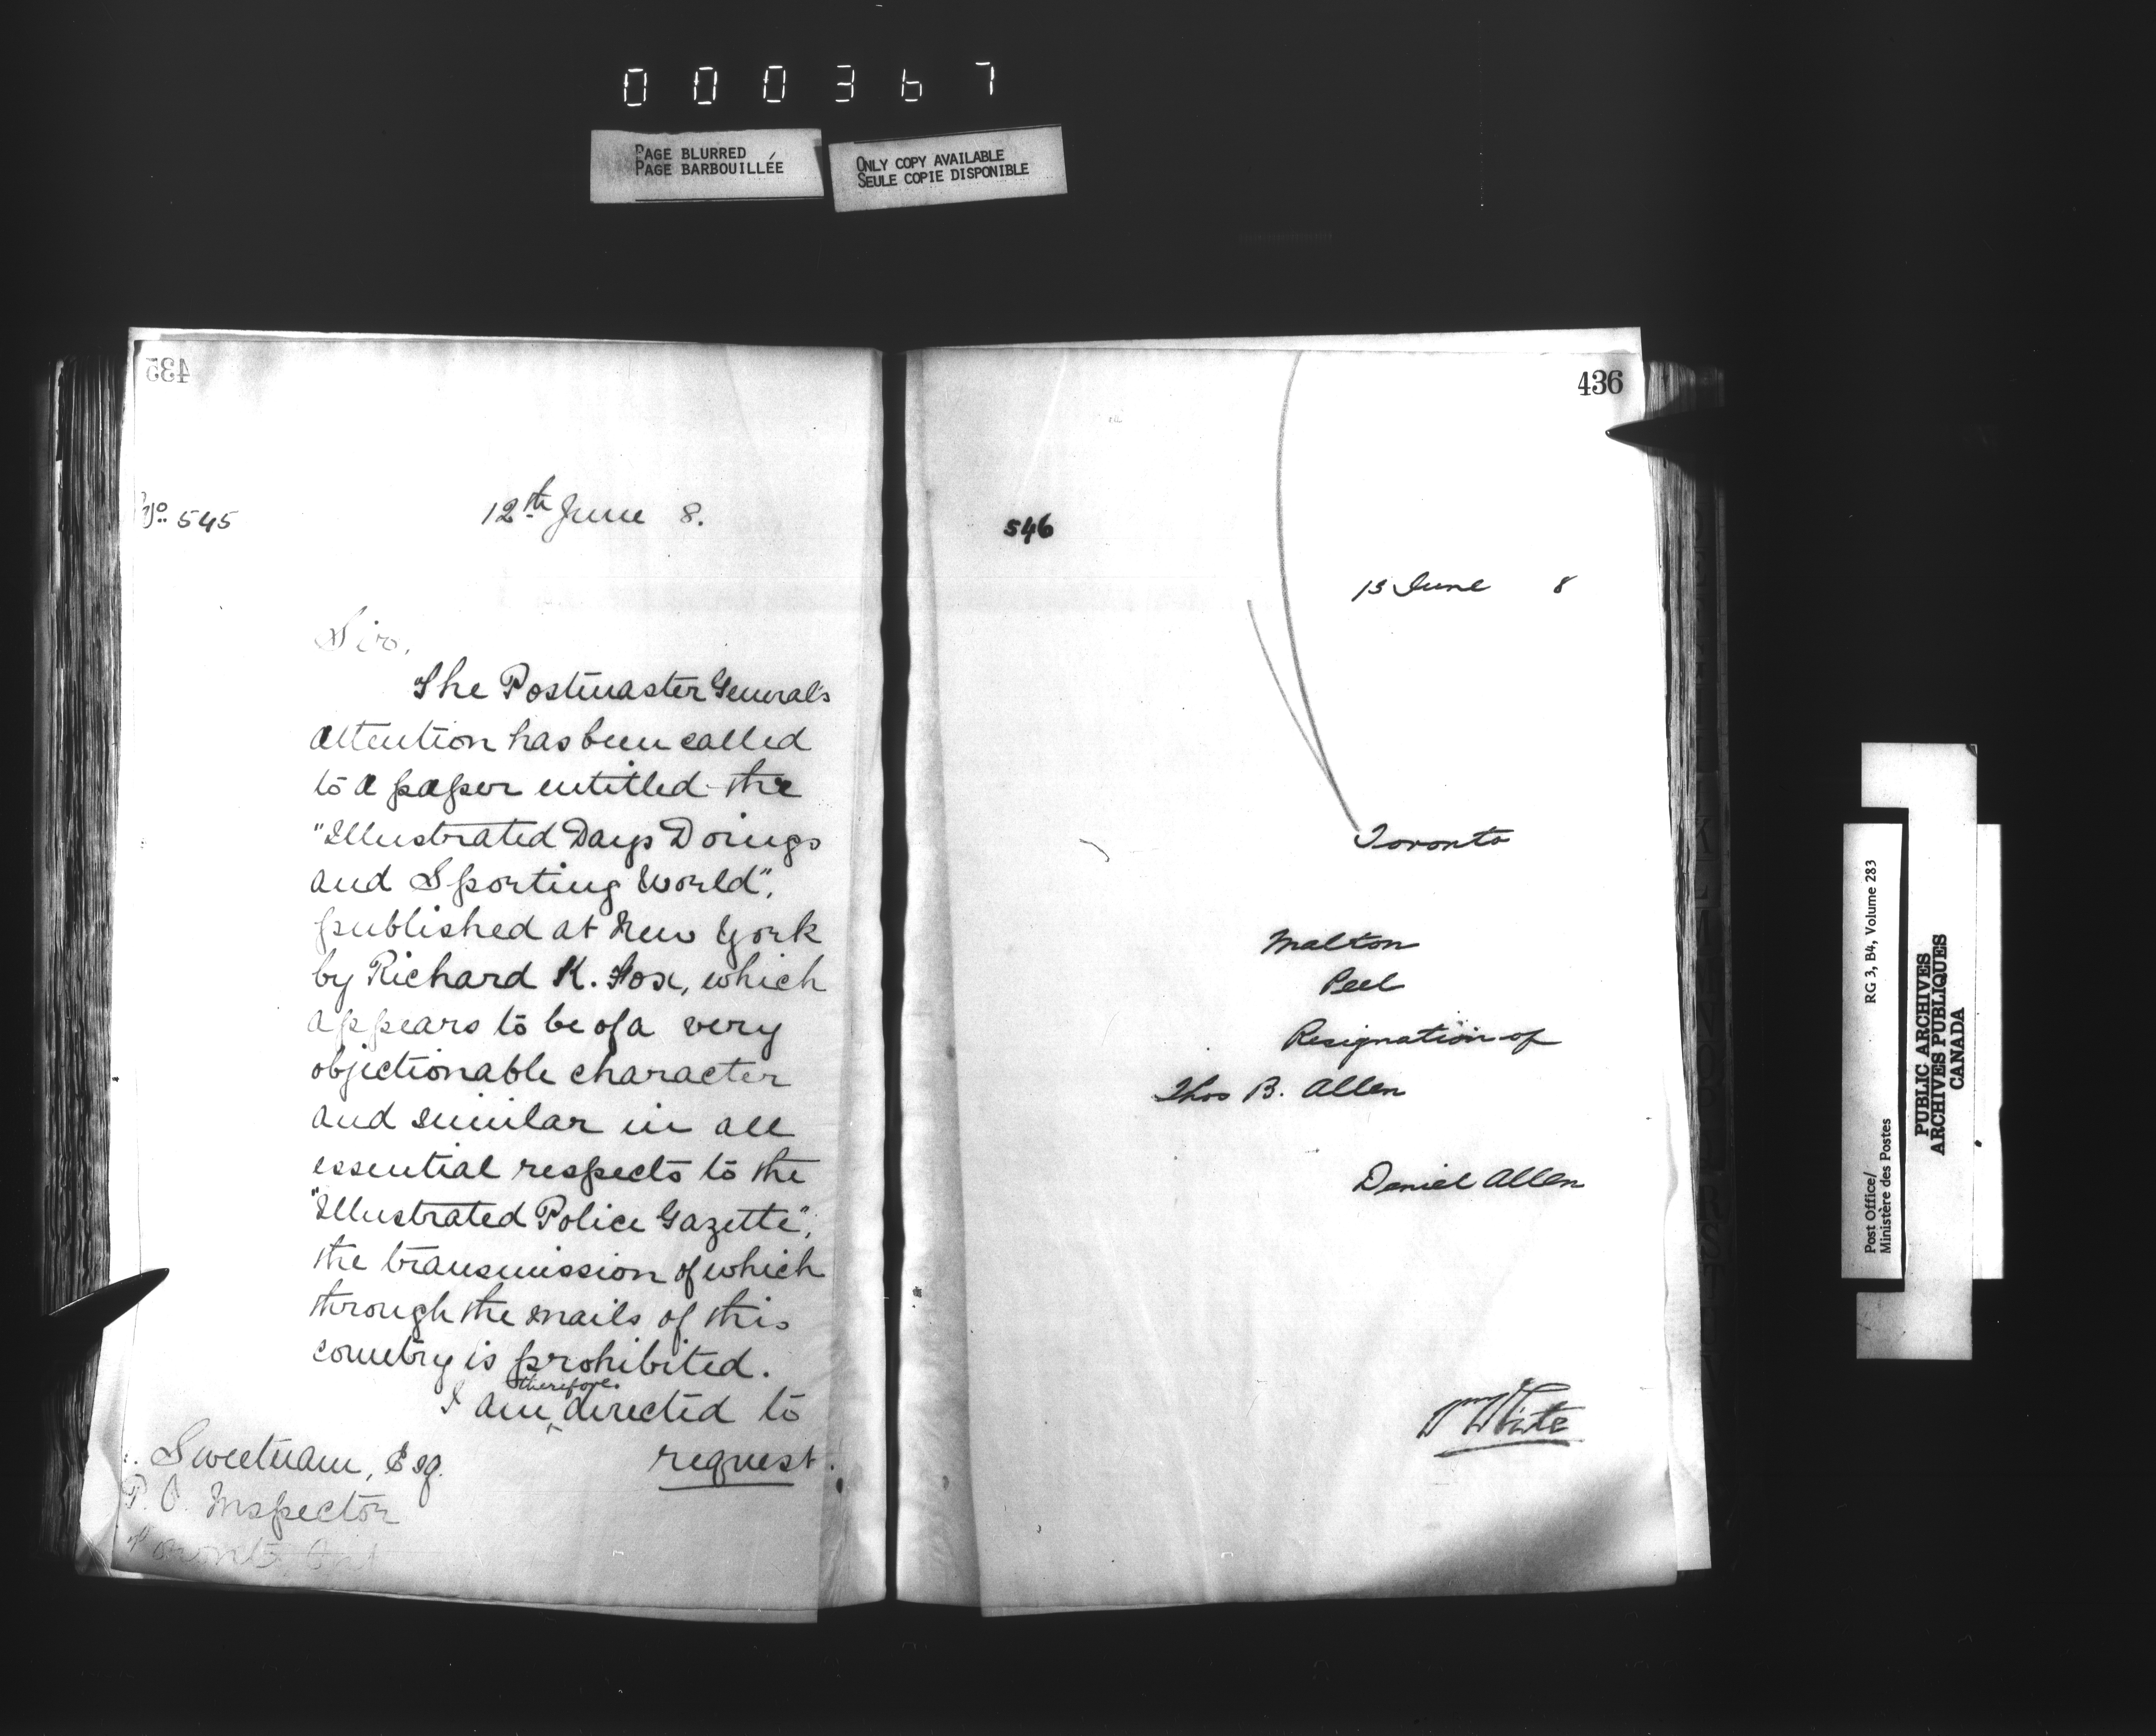 000367
PAGE BLURRED
PAGE BARBOUILLÉE
ONLY COPY AVAILABLE
SEULE COPIE DISPONIBLE
435
No. 545
12th June 8.
Sir,
The Postmaster General's
attention has been called
to a paper entitled the
"Illustrated Days Doings
and Sporting World",
published at New York
by Richard K. Fox, which
appears to be of a very
objectionable character
and similar in all
essential respects to the
"Illustrated Police Gazette",
the transmission of which
through the mails of this
country is prohibited.
I am therefore directed to
request.
Sweetnam, Esq.
P. O. Inspector
Toronto, Ont
436
546
13 June 8
Toronto
Malton
Peel
Resignation of
Thos B. Allen
Daniel Allen
Wm White
Post Office/ RG 3, B4, Volume 283
Ministère des Postes
PUBLIC ARCHIVES
ARCHIVES PUBLIQUES
CANADA